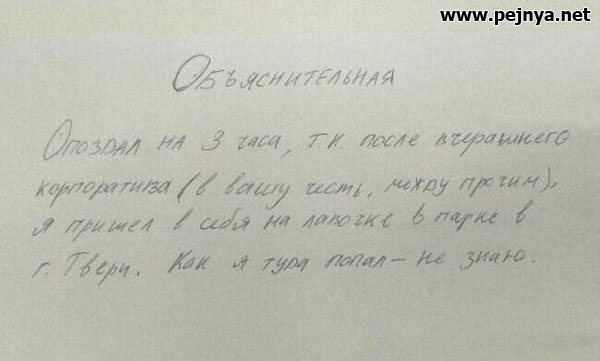 www.pejnya.net
Объяснительная
Опоздал на 3 часа, т.к. после вчерашнего
корпоратива (в вашу честь, между прочим),
я пришел в себя на лавочке в парке в
г. Твери. Как я туда попал – не знаю.